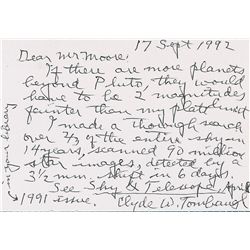 17 Sept 1992
Dear Mr Moore:
If there are more planets
beyond Pluto, they would
have to be 2 magnitudes
fainter than my plate limit
I made a thorough search
over 2/3 of the entire sky in
14 years, scanned 90 million
star images, detected by a
3½ mm shift in 6 days.
See Sky & Telescope, April
1991 issue. Clyde W. Tombaugh
in your library